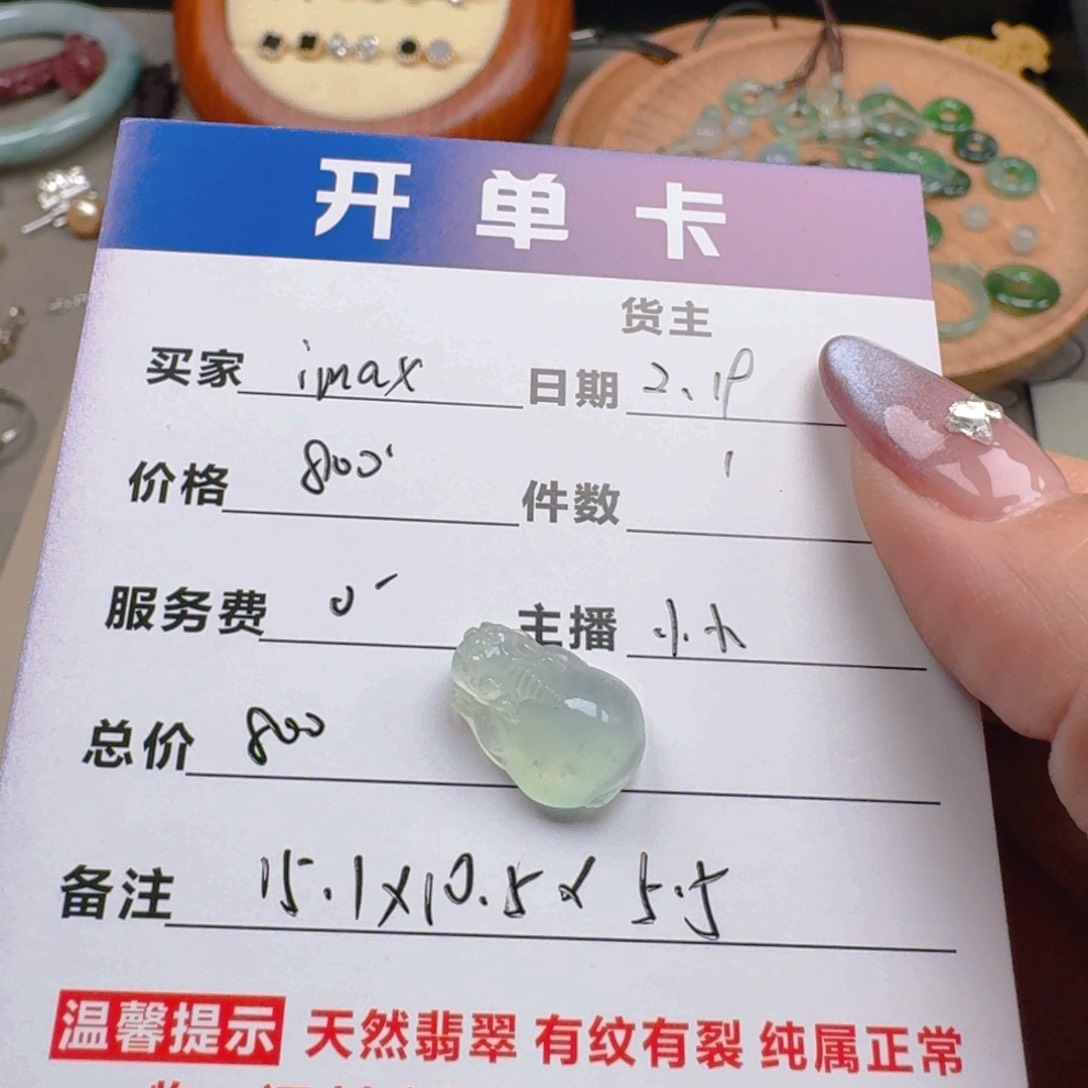 开单卡
货主
买家 imax 日期 2.19
价格 800 件数 1
服务费 0 主播 小水
总价 800
备注 15.1×10.5×5.5
温馨提示 天然翡翠 有纹有裂 纯属正常